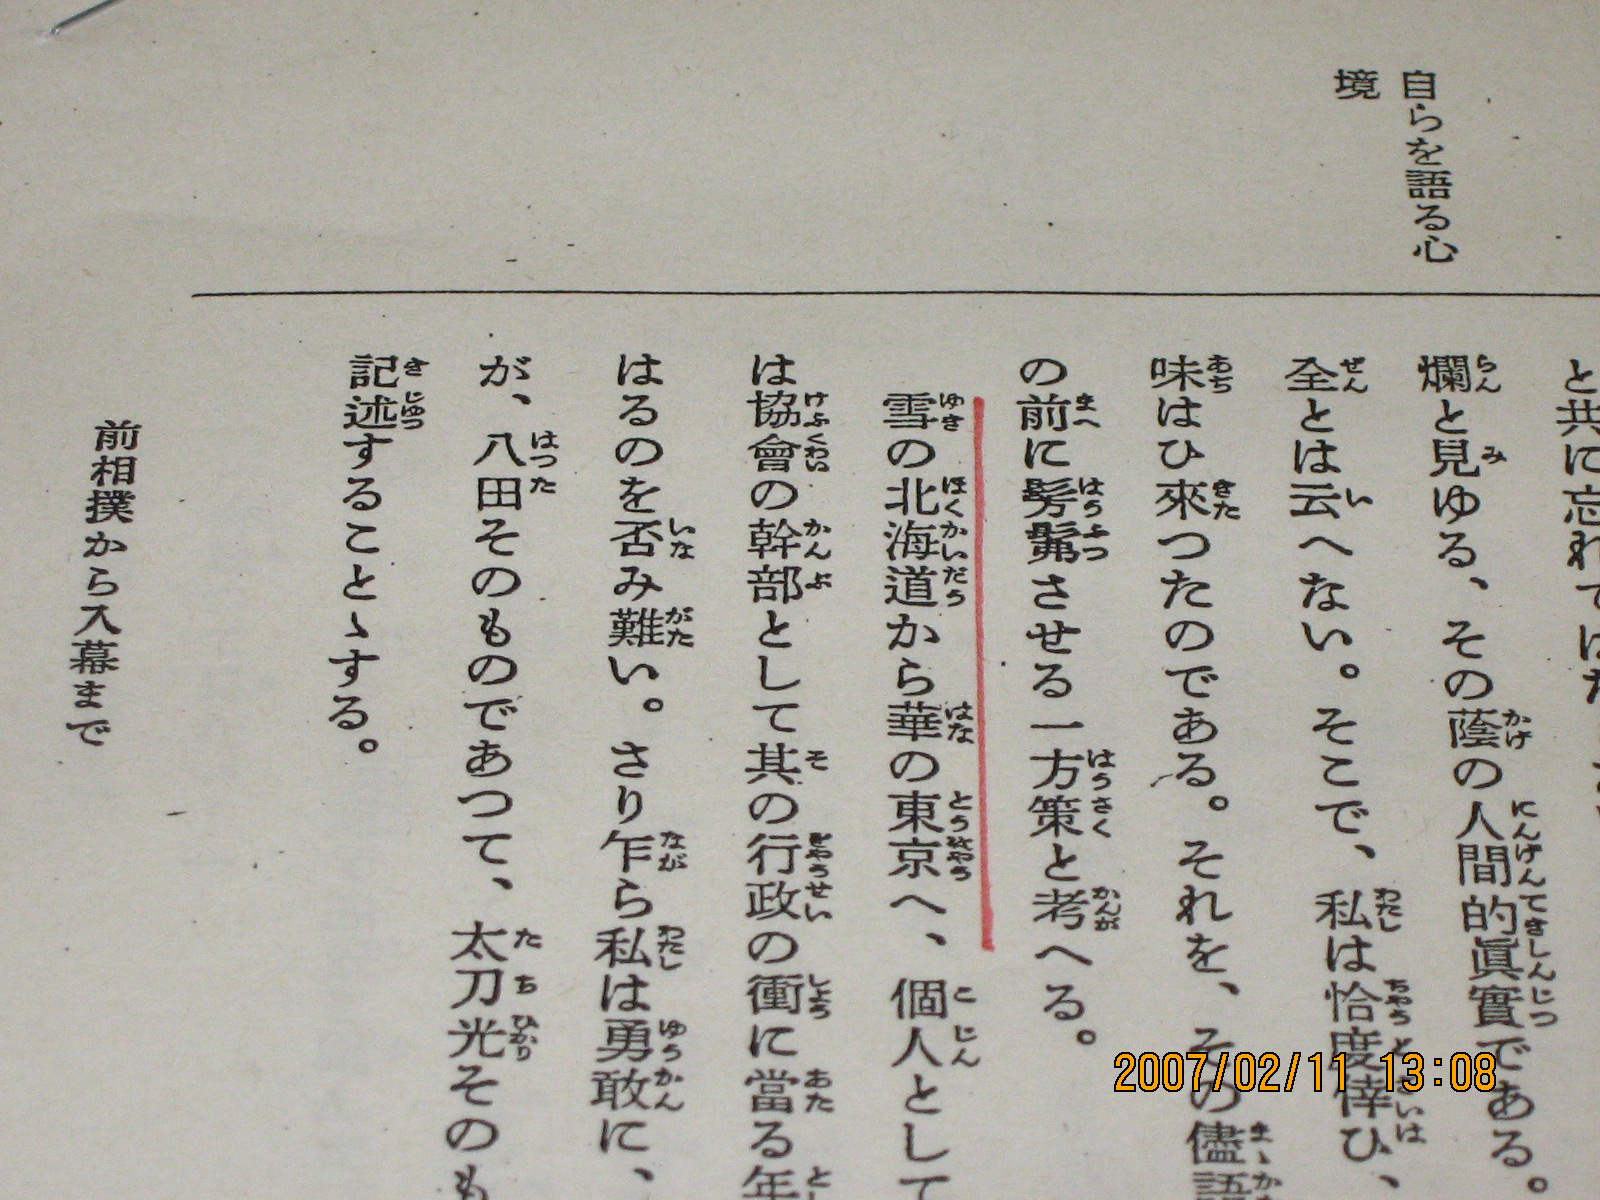 自らを語る心
境
と共に忘れては
爛と見ゆる、その蔭の人間的眞實である。
全とは云へない。そこで、私は恰度倖ひ、
味はひ來つたのである。それを、その儘語
の前に髣髴させる一方策と考へる。
雪の北海道から華の東京へ、個人として
は協會の幹部として其の行政の衝に當る年
はるのを否み難い。さり乍ら私は勇敢に、
が、八田そのものであつて、太刀光そのも
記述することゝする。
前相撲から入幕まで
2007/02/11 13:08